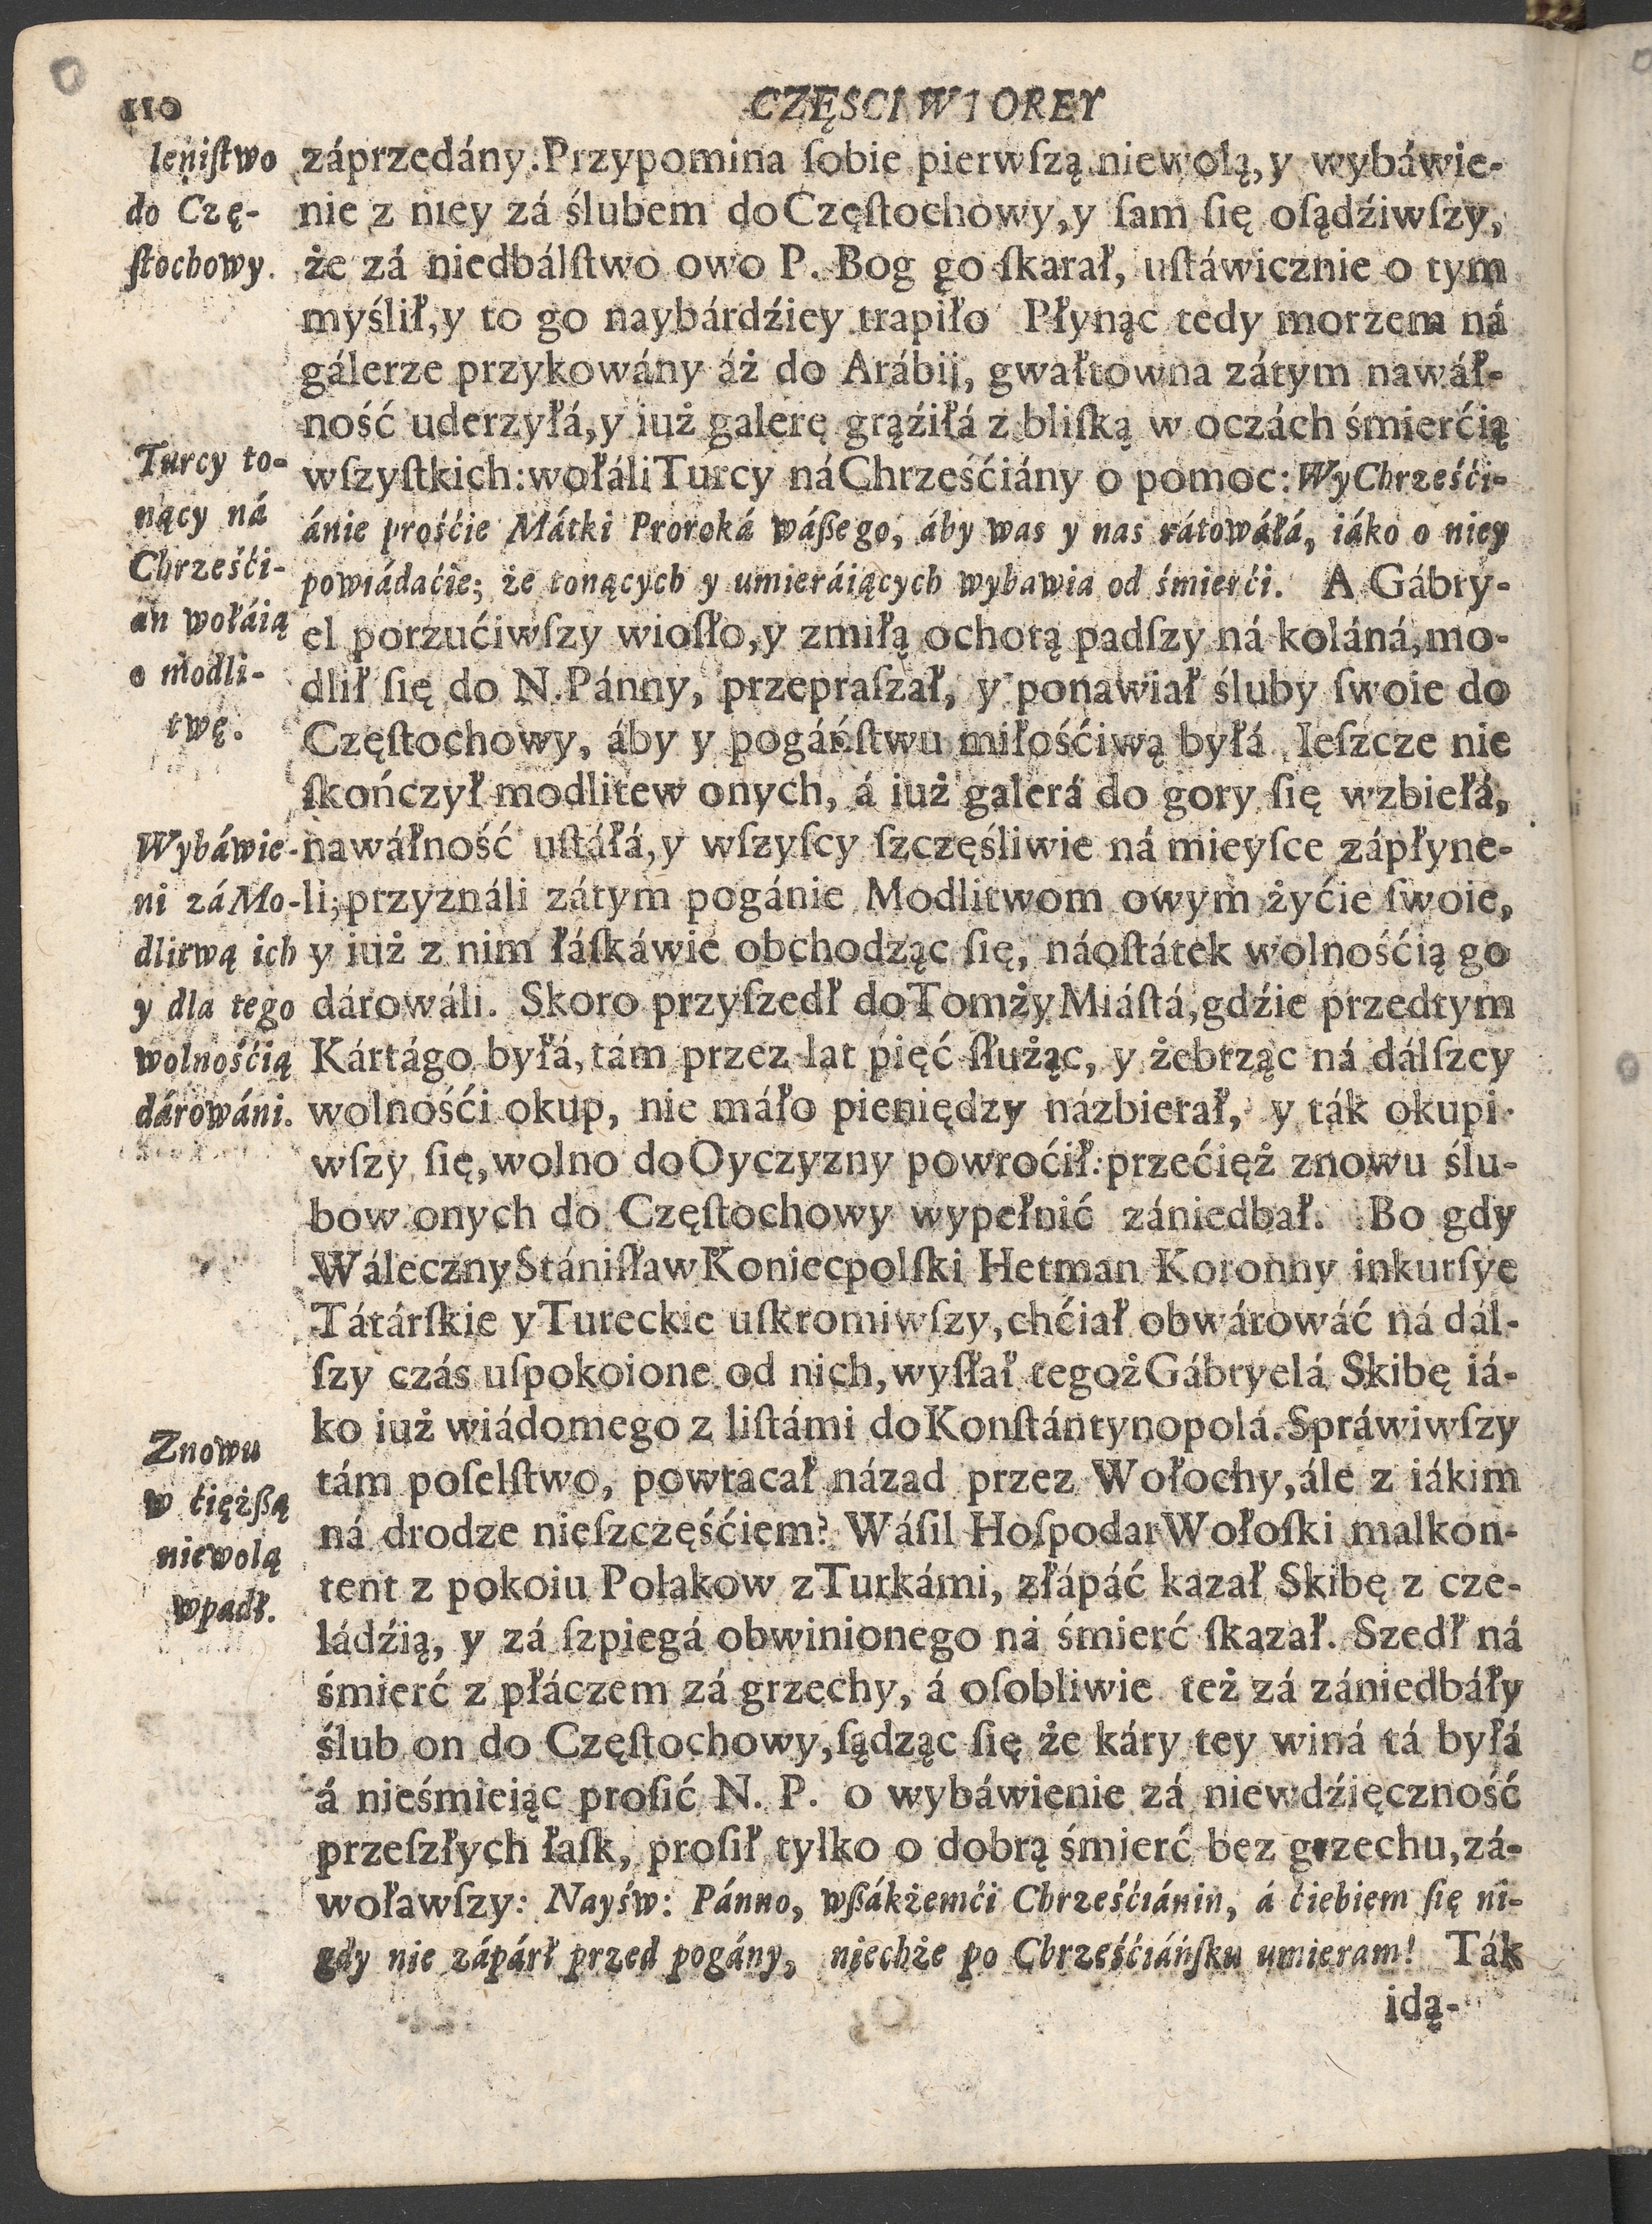 110
CZĘSCI WTOREY
leniſtwo
do Czę-
ſtochowy.
záprzedány. Przypomina ſobie pierwſzą niewolą, y wybáwie-
nie z niey zá ślubem do Częſtochowy, y ſam ſię oſądźiwſzy,
że zá niedbálſtwo owo P. Bog go ſkarał, uſtáwicznie o tym
myślił, y to go naybárdźiey trapiło Płynąc tedy morzem ná
gálerze przykowány áż do Arábij, gwałtowna zátym nawáł-
ność uderzyłá, y iuż galerę grąźiłá z bliſką w oczách śmierćią
Turcy to-
nący ná
Chrześći-
an wołáią
o modli-
twę.
wſzyſtkich: wołáli Turcy ná Chrześćiány o pomoc: Wy Chrześći-
ánie prośćie Mátki Proroká wáßego, áby was y nas rátowáłá, iáko o niey
powiádaćie; że tonących y umieráiących wybawia od śmierći. A Gábry-
el porzućiwſzy wioſło, y zmiłą ochotą padſzy ná koláná, mo-
dlił ſię do N. Pánny, przepraſzał, y ponawiał śluby ſwoie do
Częſtochowy, áby y pogáńſtwu miłośćiwą byłá. Ieſzcze nie
ſkończył modlitew onych, á iuż galerá do gory ſię wzbiełá,
Wybáwie-
ni zá Mo-
dlitwą ich
y dla tego
wolnośćią
dárowáni.
nawáłność uſtáłá, y wſzyſcy ſzczęśliwie ná mieyſce zápłyne-
li; przyználi zátym pogánie Modlitwom owym żyćie ſwoie,
y iuż z nim łáſkáwie obchodząc ſię, náoſtátek wolnośćią go
dárowáli. Skoro przyſzedł do Tomży Miáſtá, gdźie przedtym
Kártágo byłá, tám przez lat pięć ſłużąc, y żebrząc ná dálſzey
wolnośći okup, nie máło pieniędzy názbierał, y ták okupi-
wſzy ſię, wolno do Oyczyzny powroćił: przećięż znowu ślu-
bow onych do Częſtochowy wypełnić zániedbał. Bo gdy
Wáleczny Stániſław Koniecpolſki Hetman Koronny inkurſye
Tátárſkie y Tureckie uſkromiwſzy, chćiał obwárowáć ná dál-
ſzy czás uſpokoione od nich, wyſłał tegoż Gábryelá Skibę iá-
ko iuż wiádomego z liſtámi do Konſtántynopolá. Spráwiwſzy
Znowu
w ćiężßą
niewolą
wpadł.
tám poſelſtwo, powracał názad przez Wołochy, ále z iákim
ná drodze nieſzczęśćiem? Wáſil Hoſpodar Wołoſki malkon-
tent z pokoiu Polakow z Turkámi, złápáć kazał Skibę z cze-
ládźią, y zá ſzpiegá obwinionego ná śmierć ſkazał. Szedł ná
śmierć z płáczem zá grzechy, á oſobliwie też zá zániedbáły
ślub on do Częſtochowy, ſądząc ſię że káry tey winá tá byłá
á nieśmieiąc proſić N. P. o wybáwienie zá niewdźięczność
przeſzłych łaſk, proſił tylko o dobrą śmierć bez grzechu, zá-
woławſzy: Nayśw: Pánno, wßákżemći Chrześćiánin, á ćiebiem ſię ni-
gdy nie zápárł przed pogány, niechże po Chrześćiáńſku umieram! Ták
idą-